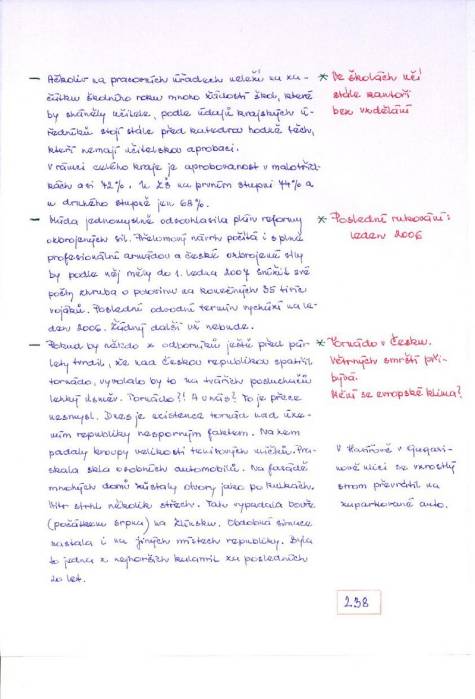 – Ačkoliv na pracovních úřadech neleží na za-
čátku školního roku mnoho žádostí škol, které
by sháněly učitele, podle údajů krajských ú-
ředníků stojí stále před katedrou hodně těch,
kteří nemají učitelskou aprobaci.
V rámci celého kraje je aprobovanost v malotříd-
kách asi 72%. U ZŠ na prvním stupni 74% a
u druhého stupně jen 68%.
– Vláda jednomyslně odsouhlasila plán reformy
ozbrojených sil. Přelomový návrh počítá i s plně
profesionální armádou a české ozbrojené síly
by podle něj měly do 1. ledna 2007 snížit své
počty zhruba o polovinu na konečných 35 tisíc
vojáků. Poslední odvodní termín vychází na le-
den 2006. Žádný další už nebude.
– Pokud by někdo z odborníků ještě před pár
lety tvrdil, že nad Českou republikou spatřil
tornádo, vyvolalo by to na tvářích posluchačů
lehký úsměv. Tornádo?! A u nás? To je přece
nesmysl. Dnes je existence tornád nad úze-
mím republiky nesporným faktem. Na zem
padaly kroupy velikosti tenisových míčků. Pra-
skala skla osobních automobilů. Na fasádě
mnohých domů zůstaly otvory jako po kulkách.
Vítr strhl několik střech. Tak vypadala bouře
(počátkem srpna) na Zlínsku. Obdobná situace
nastala i na jiných místech republiky. Byla
to jedna z nejhorších kalamit za posledních
20 let.
* Ve školách učí
stále kantoři
bez vzdělání
* Poslední rukování:
leden 2006
* Tornádo v Česku.
Větrných smrští při-
bývá.
Mění se evropské klima?
V Havířově v Gagari-
nově ulici se vzrostlý
strom převrátil na
zaparkované auto.
238